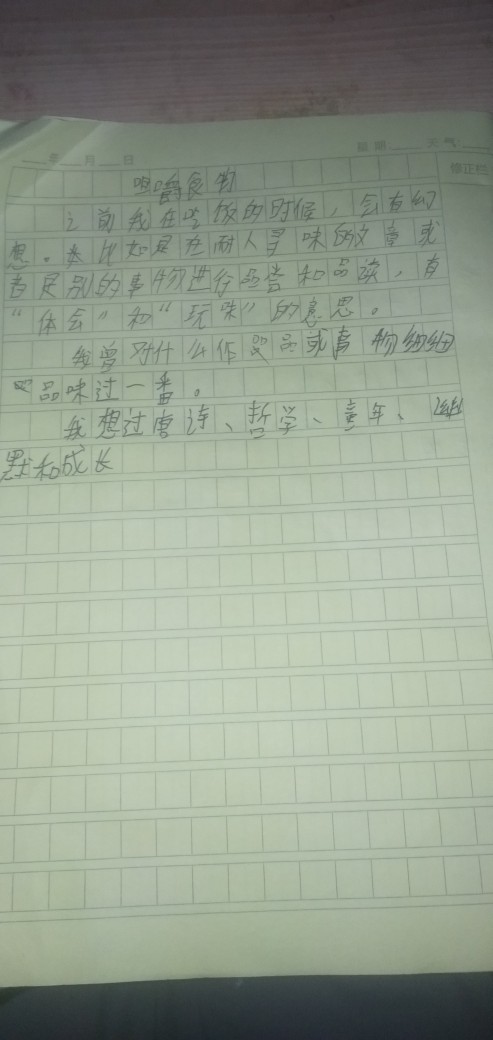 年 月 日 星期 天气
修正栏
咀嚼食物
之前我在吃饭的时候，会有幻
想。比如是在耐人寻味的文章或
者是别的事物进行品尝和品读，有
“体会”和“玩味”的意思。
我曾对什么作品或事物细细
品味过一番。
我想过唐诗、哲学、童年、幽
默和成长